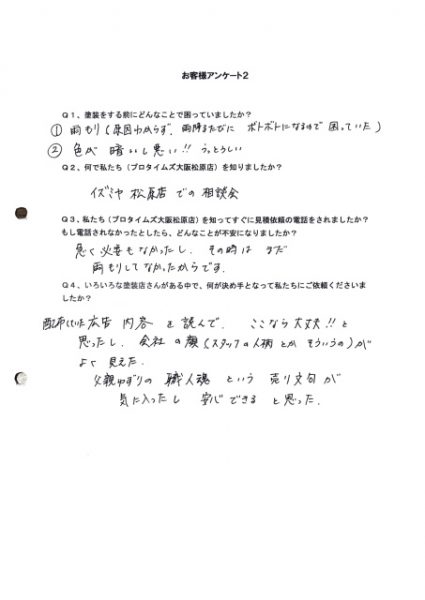 お客様アンケート2
Q1、塗装をする前にどんなことで困っていましたか?
① 雨もり(原因わからず、雨降るたびに ボトボトになるので 困っていた)
② 色が 暗いし 悪い!! うっとうしい
Q2、何で私たち(プロタイムズ大阪松原店)を知りましたか?
イズミヤ 松原店 での 相談会
Q3、私たち(プロタイムズ大阪松原店)を知ってすぐに見積依頼の電話をされましたか?
もし電話されなかったとしたら、どんなことが不安になりましたか?
急ぐ 必要 も なかったし、 その時は まだ
雨もりしてなかったからです。
Q4、いろいろな塗装店さんがある中で、何が決め手となって私たちにご依頼くださいま
したか?
配布していた 広告 内容 を 読んで、 ここなら 大丈夫!! と
思ったし、 会社 の 顔 (スタッフの 人柄 とか そういうの) が
よく 見えた。
父親ゆずりの 職人魂 という 売り文句 が
気に入ったし 安心 できる と 思った。